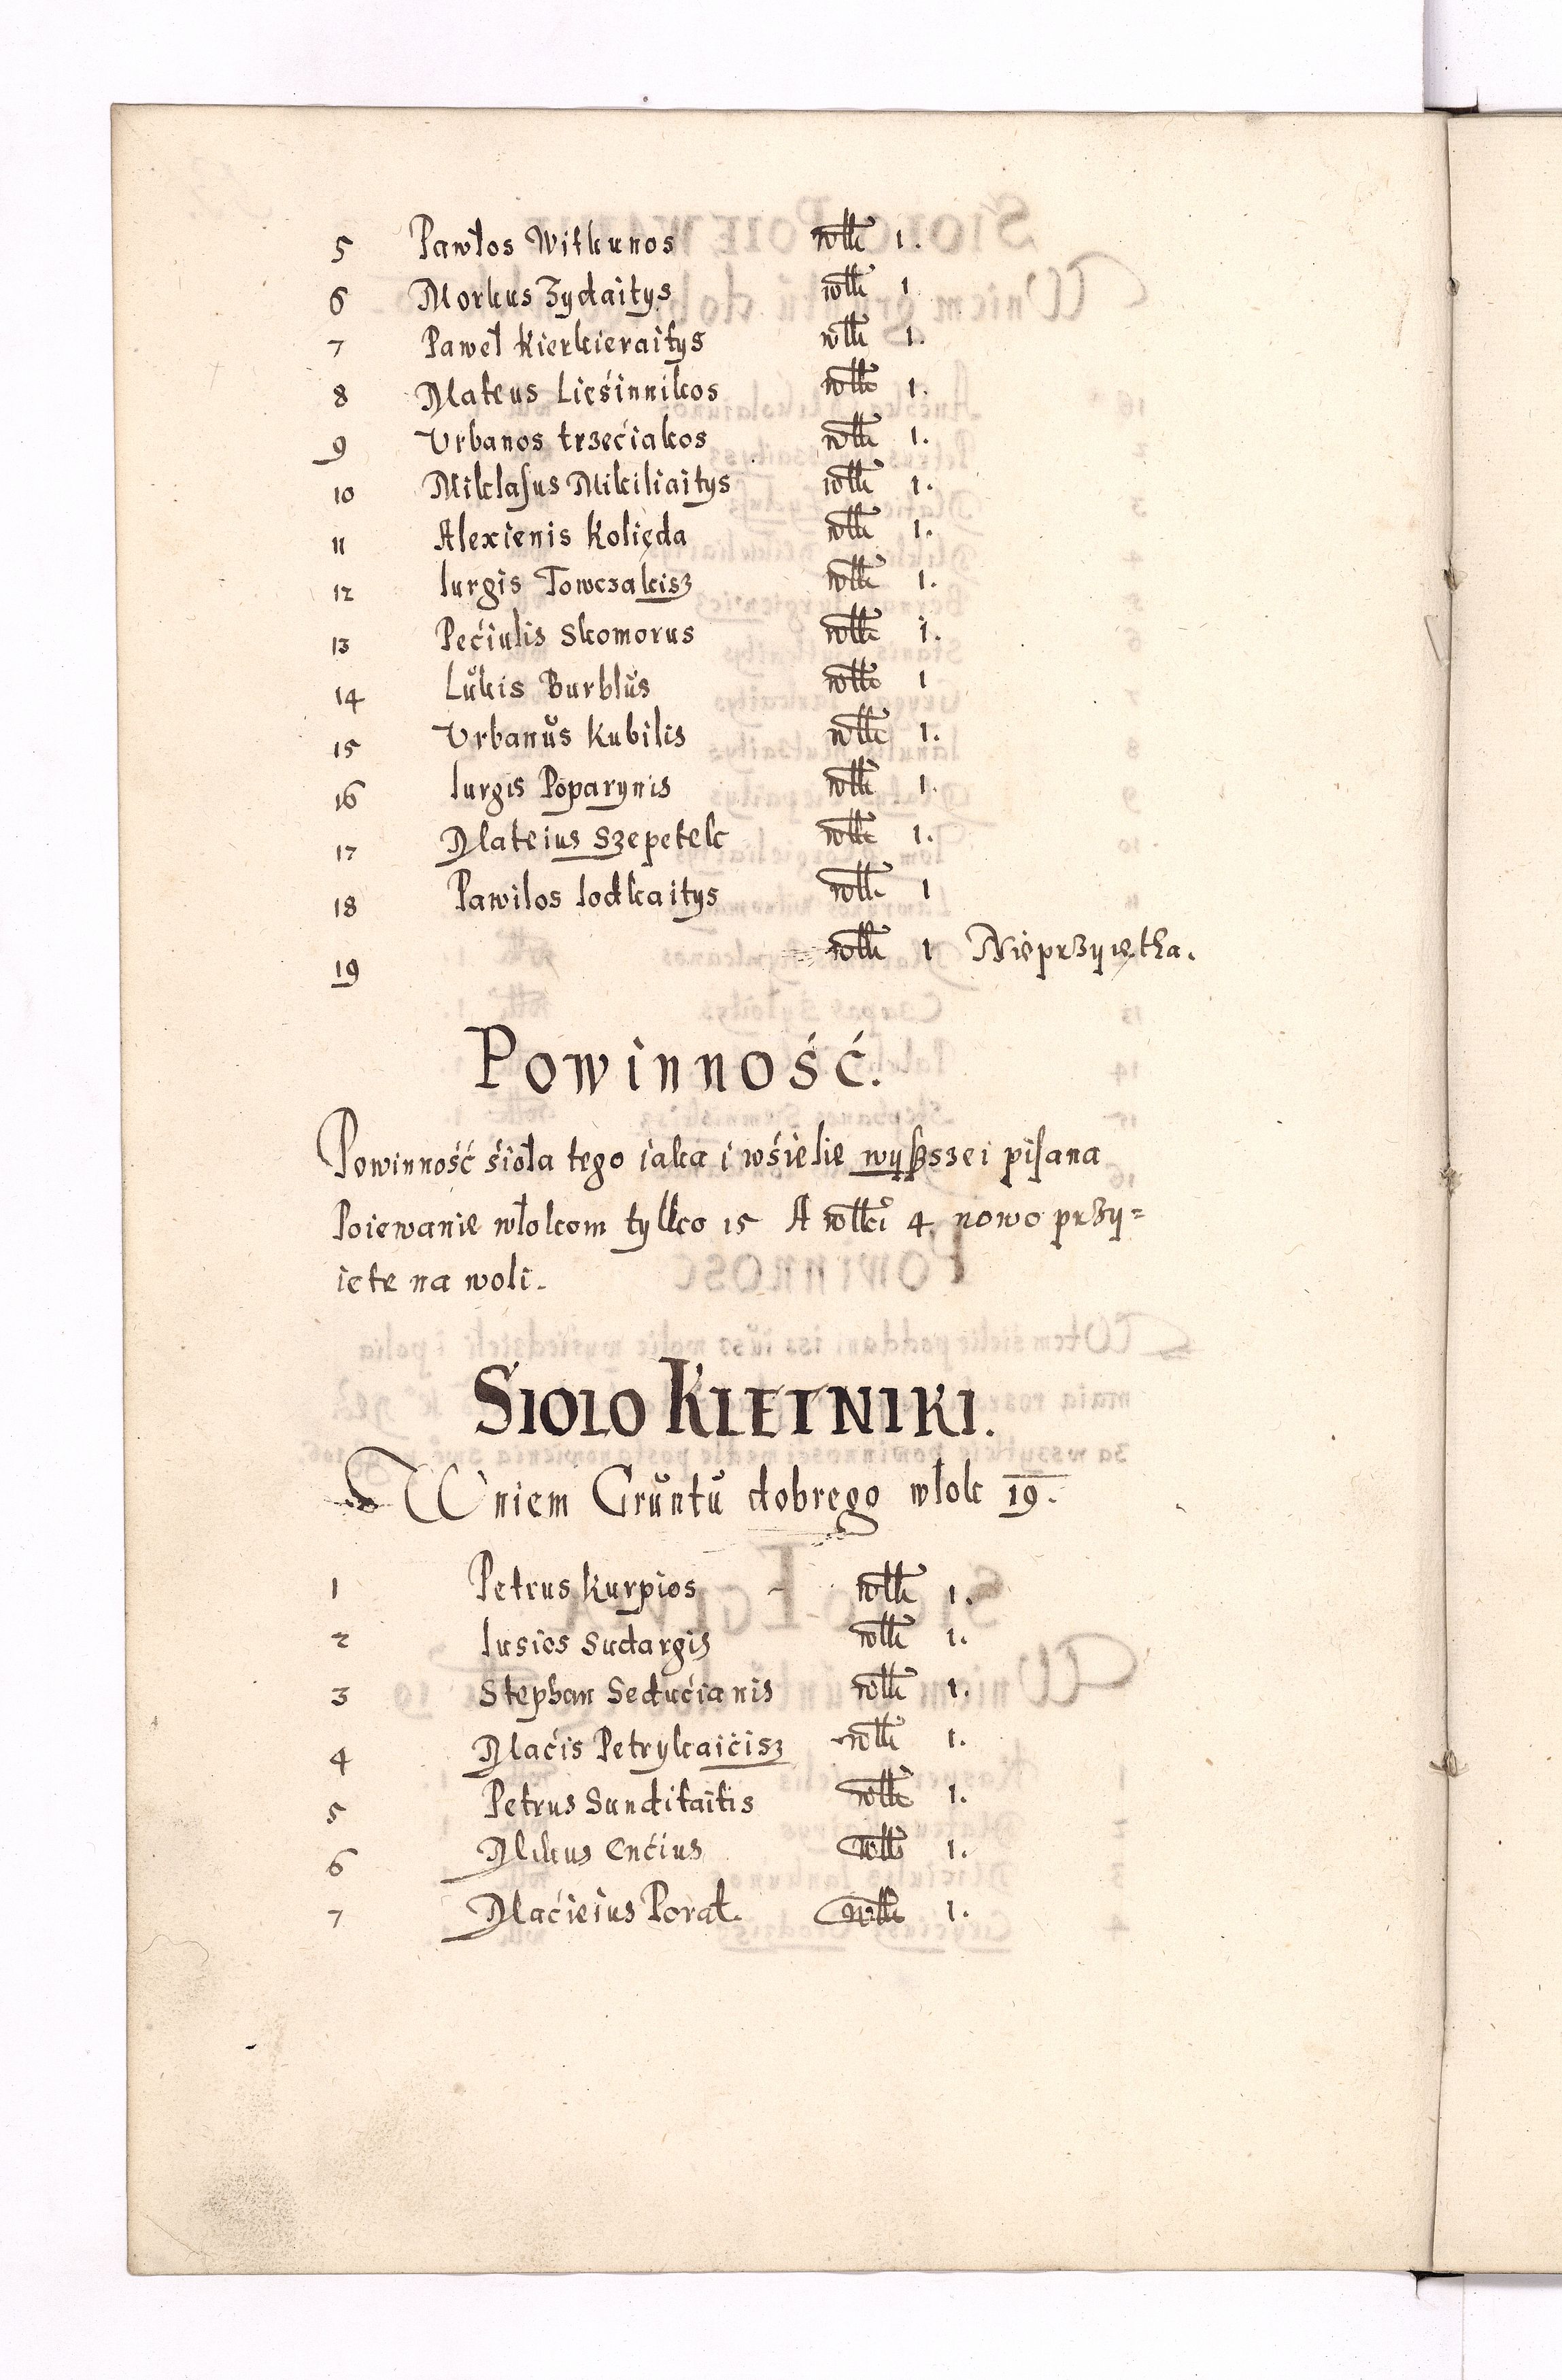 5 Pawłos Witkunos włk 1.
6 Morkus Zydaitys włk 1
7 Paweł Kierkieraitys włk 1.
8 Mateus Lieśinnikos włk 1.
9 Vrbanos trzećiakos włk 1.
10 Miklaſus Mikiliaitys włk 1.
11 Alexienis Kolięda włk 1.
12 Iurgis Towczakisz włk 1.
13 Pećiulis Skomorus włk 1.
14 Lŭkis Burblŭs włk 1
15 Vrbanŭs Kubilis włk 1.
16 Iurgis Poparynis włk 1.
17 Mateius Szepetek włk 1.
18 Pawilos Iodkaitys włk 1
19 włk 1 Nieprzyiętha.
Powinność.
Powinność śioła tego iaka i wśielie wyſszei piſana
Poiewanie włokom tylko 15 A włki 4 nowo przy=
iete na woli.
SIOLO KLETNIKI.
W niem Grŭntŭ dobrego włok 19.
1 Petrus Kurpios włk 1.
2 Iusios Sudargis włk 1.
3 Stephan Sedućianis włk 1.
4 Maćis Petrykaićisz włk 1.
5 Petrus Sunditaitis włk 1.
6 Mikus Enćius włk 1.
7 Maćieius Porał. włk 1.